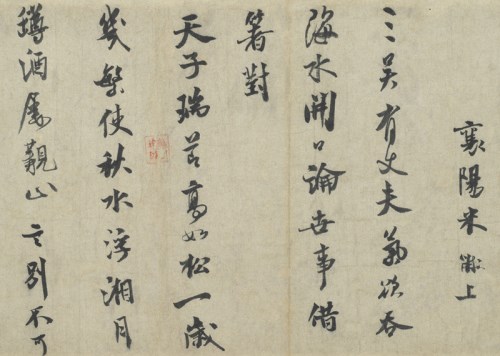 襄陽米黻上
三吳有丈夫氣欲吞
海水開口論世事借
箸對
天子瑞節高如松一歲
幾繁使秋水浮湘月
酒屢觀山言別不可